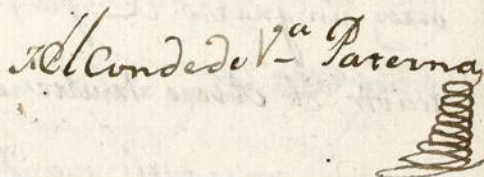 El Conde de V.ª Paterna